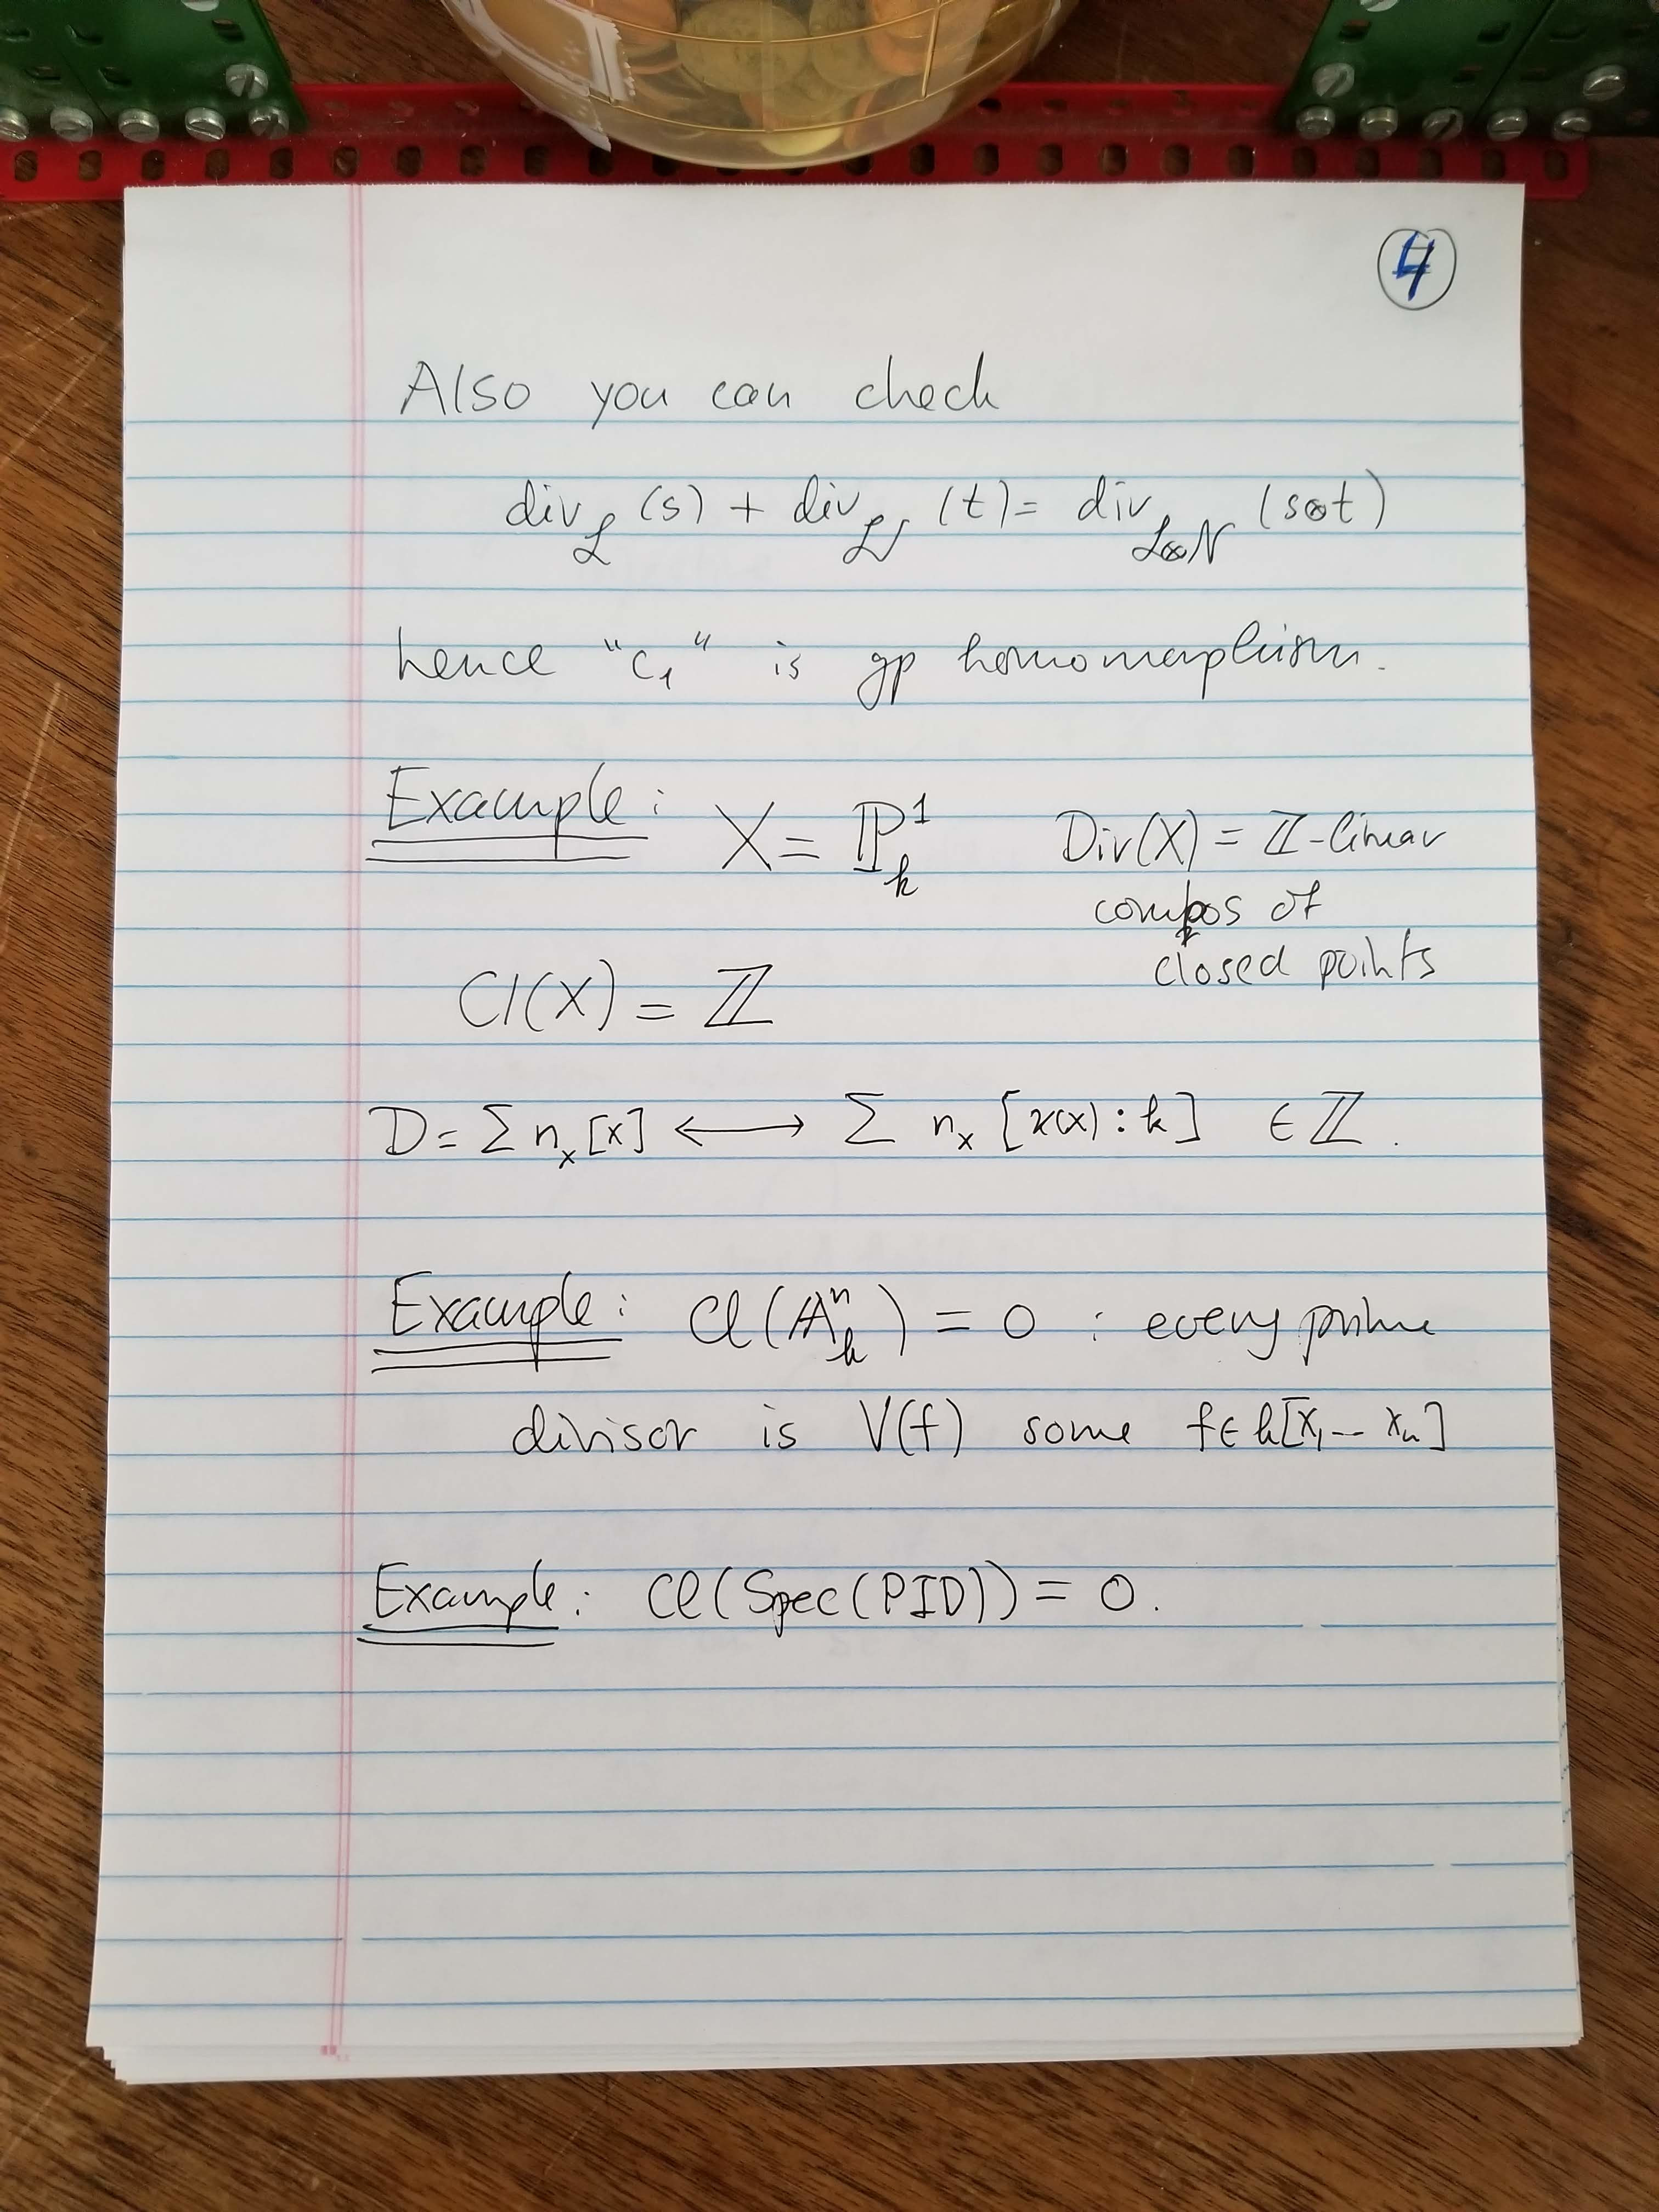 4
Also you can check
div_ℒ (s) + div_𝒩 (t) = div_{ℒ⊗𝒩} (s⊗t)
hence "c₁" is gp homomorphism.
Example: X = ℙ¹_k Div(X) = ℤ-linear
combos of
closed points
Cl(X) = ℤ
D = Σ n_x [x] ⟷ Σ n_x [κ(x) : k] ∈ ℤ.
Example: Cl(𝔸ⁿ_k) = 0 : every prime
divisor is V(f) some f ∈ k[x₁ -- xₙ]
Example: Cl(Spec(PID)) = 0.